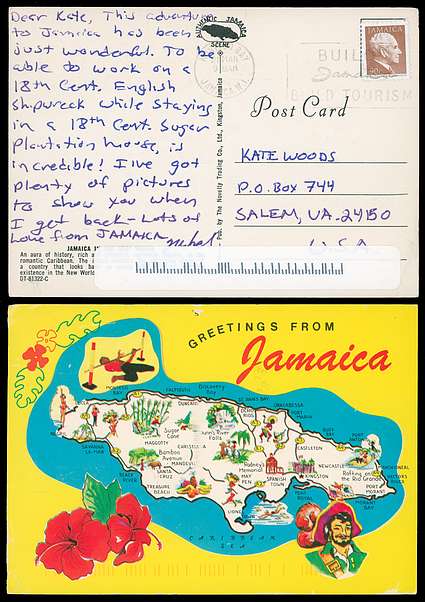 Dear Kate, This
to Jamaica has been
just wonderful. To be
able to work on a
18th Cent. English
shipwreck while staying
in a 18th Cent. Sugar
Plantation house, is
incredible! I've got
plenty of pictures
to show you when
I get back - Lots of
Love from JAMAICA
JAMAICA
An aura of history, rich a
romantic Caribbean. The
a country that looks ba
existence in the New World
DT-81322-C
AUTHENTIC JAMAICA
SCENE
Pub. by The Novelty Trading Co., Ltd., Kingston, Jamaica
BAY
JAMAICA
BUIL
BUILD TOURISM
JAMAICA
90c
Post Card
KATE WOODS
P.O. BOX 744
SALEM, VA. 24150
U.S.A
GREETINGS FROM
Jamaica
MONTEGO BAY
FALMOUTH
Discovery Bay
ST. ANN'S BAY
ORACABESSA
LUCEA
DUNCANS
OCHO RIOS
PORT MARIA
Sugar Cane
Dunn's River Falls
BUFF BAY
PORT ANTONIO
SAVANNA-LA-MAR
MAGGOTTY
CASTLETON
Bamboo Avenue
MANDEVILLE
Rodney's Memorial
NEWCASTLE
Rafting on the Rio Grande
MANCHIONEAL
BLACK RIVER
SANTA CRUZ
MAY PEN
SPANISH TOWN
KINGSTON
PORT MORANT
TREASURE BEACH
PORT ROYAL
LIONEL
CARIBBEAN
SEA